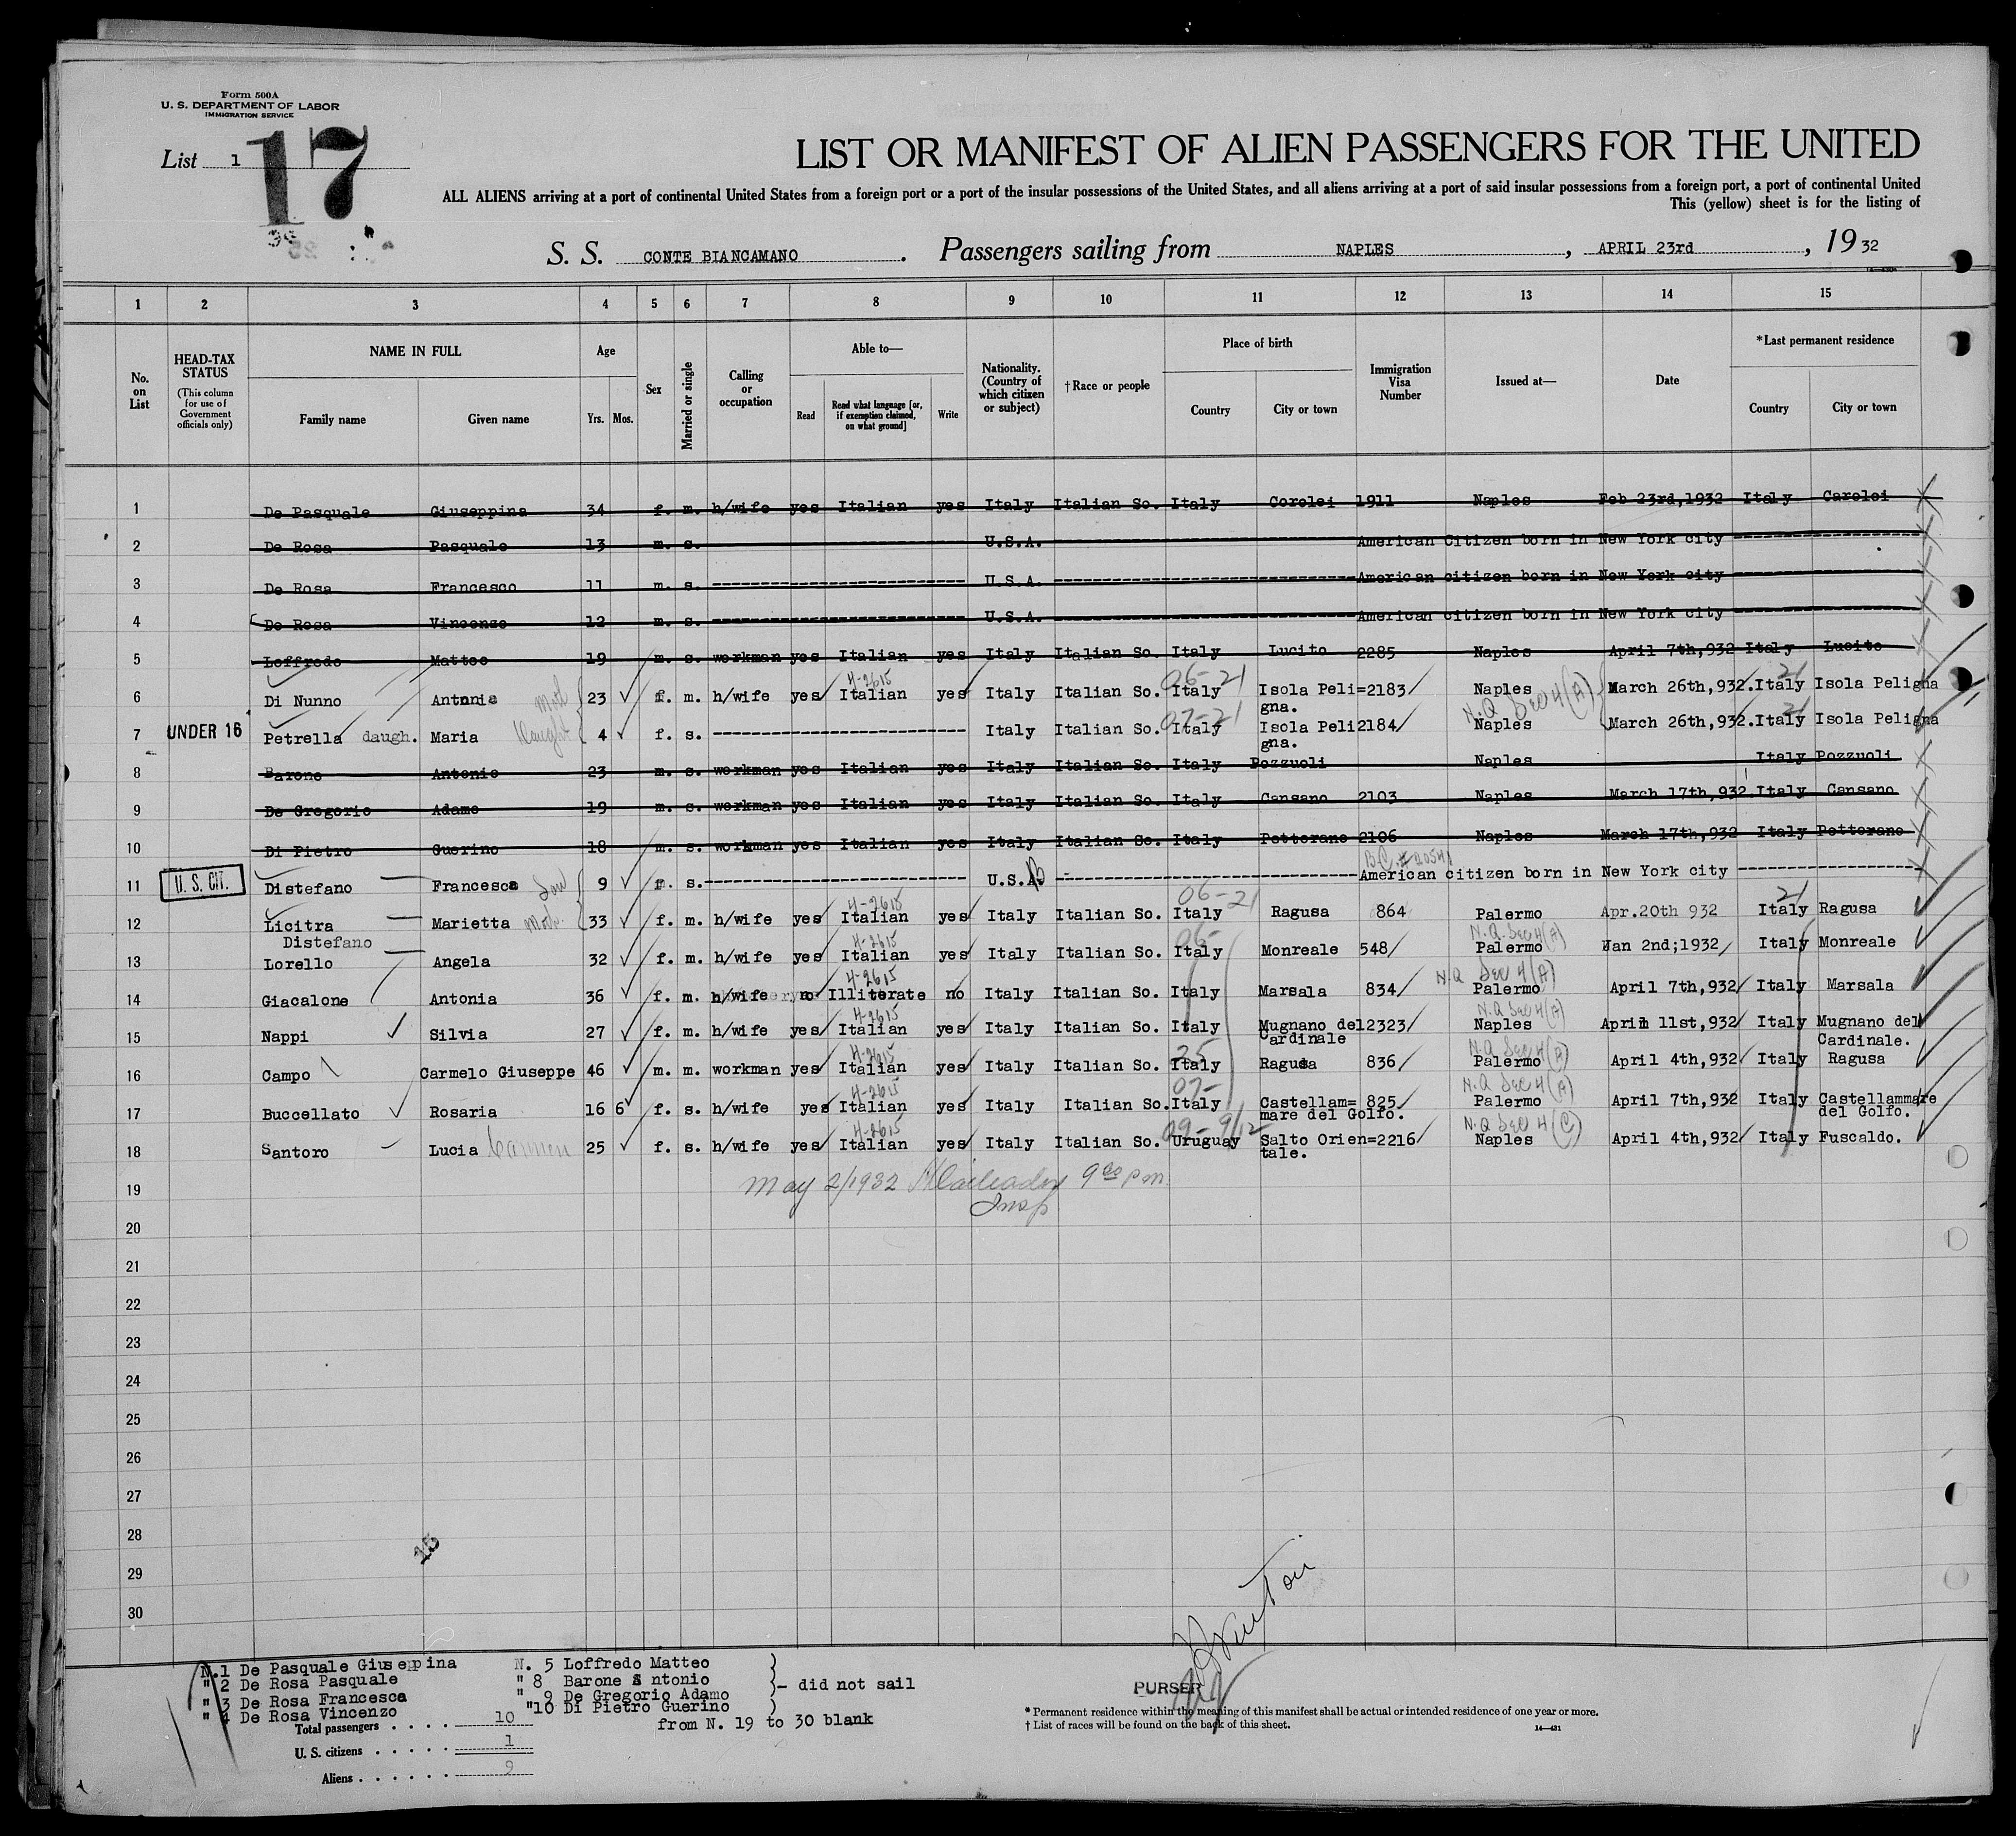 Form 500A
U. S. DEPARTMENT OF LABOR
IMMIGRATION SERVICE
List 1
17
LIST OR MANIFEST OF ALIEN PASSENGERS FOR THE UNITED
ALL ALIENS arriving at a port of continental United States from a foreign port or a port of the insular possessions of the United States, and all aliens arriving at a port of said insular possessions from a foreign port, a port of continental United
This (yellow) sheet is for the listing of
S. S. CONTE BIANCAMANO. Passengers sailing from NAPLES, APRIL 23rd, 1932
1 2 3 4 5 6 7 8 9 10 11 12 13 14 15
No. on List
HEAD-TAX STATUS
(This column for use of Government officials only)
NAME IN FULL
Family name
Given name
Age
Yrs. Mos.
Sex
Married or single
Calling or occupation
Able to—
Read
Read what language [or, if exemption claimed, on what ground]
Write
Nationality. (Country of which citizen or subject)
†Race or people
Place of birth
Country
City or town
Immigration Visa Number
Issued at—
Date
*Last permanent residence
Country
City or town
1 De Pasquale Giuseppina 34 f. m. h/wife yes Italian yes Italy Italian So. Italy Corolei 1911 Naples Feb 23rd,1932 Italy Carolei
2 De Rosa Pasquale 13 m. s. U.S.A. American Citizen born in New York city
3 De Rosa Francesco 11 m. s. U.S.A. American citizen born in New York city
4 De Rosa Vincenzo 12 m. s. U.S.A. American citizen born in New York city
5 Loffredo Matteo 19 m. s. workman yes Italian yes Italy Italian So. Italy Lucito 2285 Naples April 7th,932 Italy Lucito
4-2615 06-21 21
6 Di Nunno Antonia Moth 23 f. m. h/wife yes Italian yes Italy Italian So. Italy Isola Peli=gna. 2183 Naples March 26th,932. Italy Isola Peligna
N.Q Sec 4(A)
07-21 21
7 UNDER 16 Petrella daugh. Maria Daught 4 f. s. Italy Italian So. Italy Isola Peligna. 2184 Naples March 26th,932. Italy Isola Peligna
8 Barone Antonio 23 m. s. workman yes Italian yes Italy Italian So. Italy Pozzuoli Naples Italy Pozzuoli
9 De Gregorio Adamo 19 m. s. workman yes Italian yes Italy Italian So. Italy Cansano 2103 Naples March 17th,932 Italy Cansano
10 Di Pietro Guerino 18 m. s. workman yes Italian yes Italy Italian So. Italy Pettorano 2106 Naples March 17th,932 Italy Pettorano
11 U. S. CIT. Distefano Francesca Son 9 s. U.S.A. American citizen born in New York city
4-2615 06-21 21
12 Licitra Marietta Moth. 33 f. m. h/wife yes Italian yes Italy Italian So. Italy Ragusa 864 Palermo Apr.20th 932 Italy Ragusa
Distefano
4-2615 06- N.Q. Sec 4(A)
13 Lorello Angela 32 f. m. h/wife yes Italian yes Italy Italian So. Italy Monreale 548 Palermo Jan 2nd;1932 Italy Monreale
4-2615 N.Q Sec 4(A)
14 Giacalone Antonia 36 f. m. h/wife no Illiterate no Italy Italian So. Italy Marsala 834 Palermo April 7th,932 Italy Marsala
4-2615 N.Q Sec 4(A)
15 Nappi Silvia 27 f. m. h/wife yes Italian yes Italy Italian So. Italy Mugnano del Cardinale 2323 Naples April 11st,932 Italy Mugnano del Cardinale.
4-2615 25 N.Q Sec 4(A)
16 Campo Carmelo Giuseppe 46 m. m. workman yes Italian yes Italy Italian So. Italy Ragusa 836 Palermo April 4th,932 Italy Ragusa
4-2615 07- N.Q Sec 4(A)
17 Buccellato Rosaria 16 6 f. s. h/wife yes Italian yes Italy Italian So. Italy Castellam=mare del Golfo. 825 Palermo April 7th,932 Italy Castellammare del Golfo.
4-2615 09-9/12 N.Q Sec 4(C)
18 Santoro Lucia Carmen 25 f. s. h/wife yes Italian yes Italy Italian So. Uruguay Salto Orien=tale. 2216 Naples April 4th,932 Italy Fuscaldo.
19 May 2/1932 9 00 pm
Insp
20
21
22
23
24
25
26
27
28
29
30
N.1 De Pasquale Giuseppina N. 5 Loffredo Matteo
" 2 De Rosa Pasquale " 8 Barone Antonio - did not sail
" 3 De Rosa Francesca " 9 De Gregorio Adamo
" 4 De Rosa Vincenzo "10 Di Pietro Guerino
from N. 19 to 30 blank
Total passengers . . . . 10
U. S. citizens . . . . . 1
Aliens . . . . . . 9
PURSER
* Permanent residence within the meaning of this manifest shall be actual or intended residence of one year or more.
† List of races will be found on the back of this sheet.
14—431